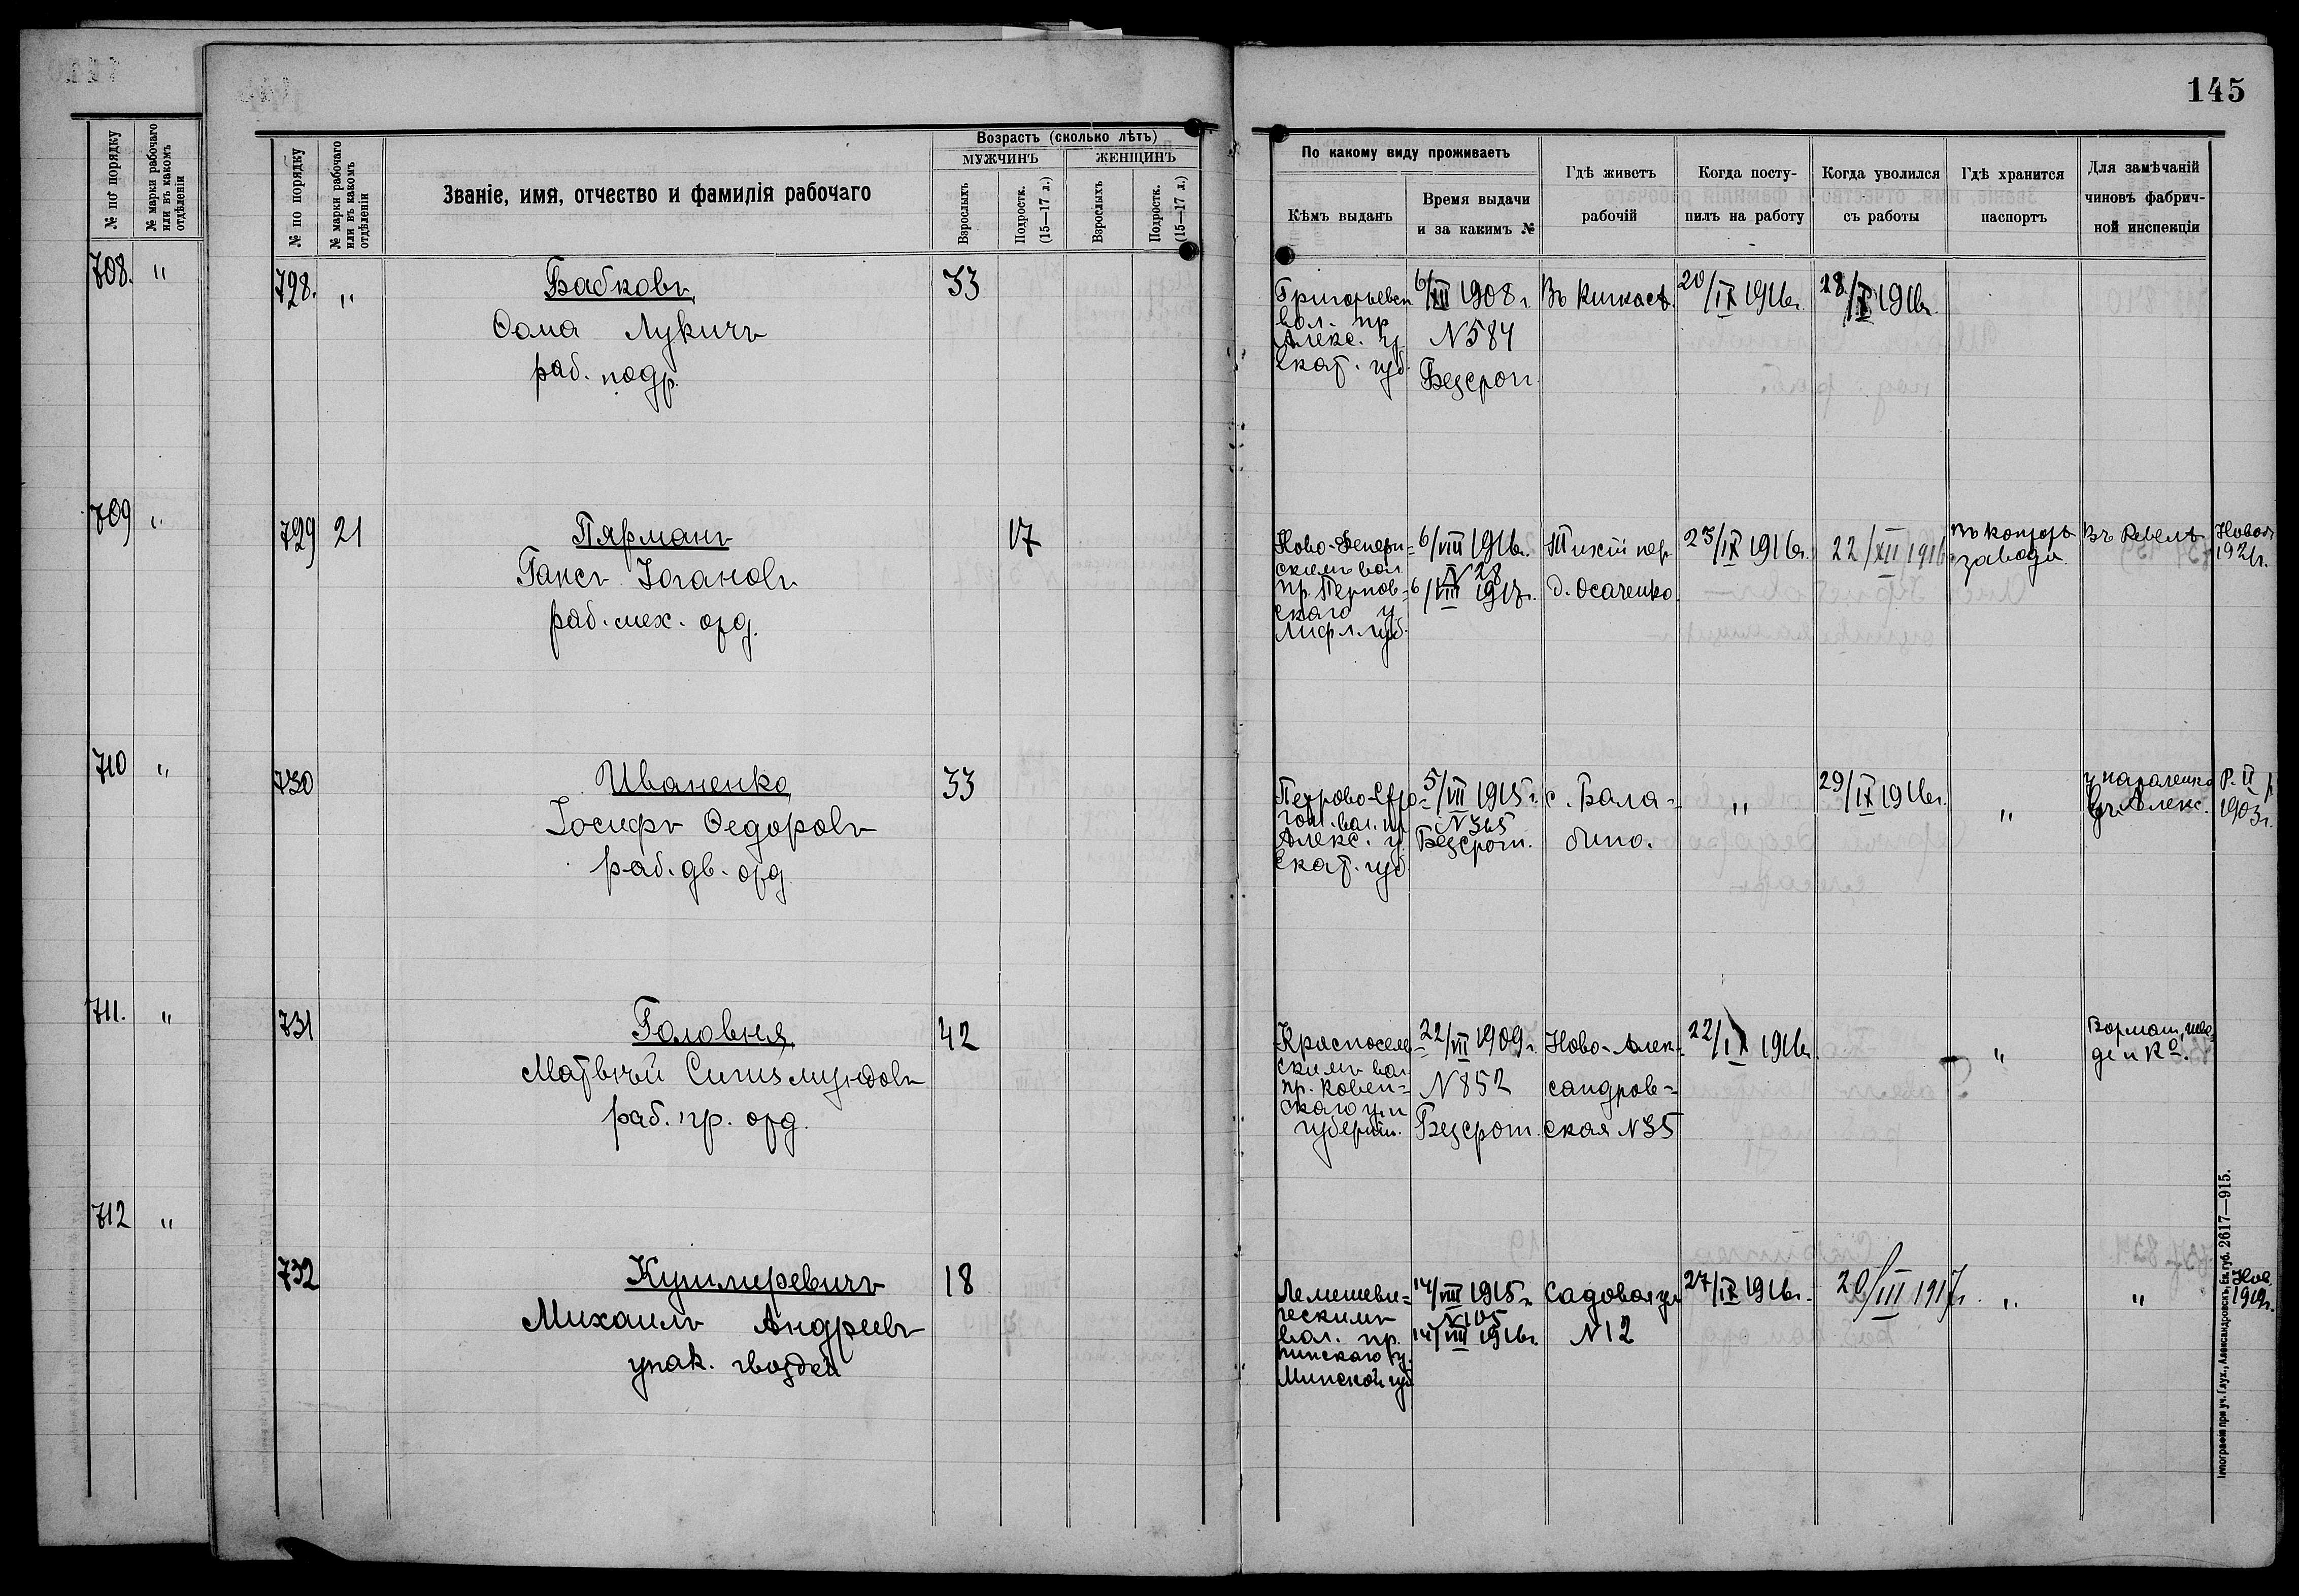 145
№ по порядку
№ марки рабочаго
или въ какомъ
отдѣленіи
708. "
709 "
710 "
711. "
712 "
№ по порядку
№ марки рабочаго
или въ какомъ
отдѣленіи
Званіе, имя, отчество и фамилія рабочаго
Возрастъ (сколько лѣтъ)
МУЖЧИНЪ
ЖЕНЩИНЪ
Взрослыхъ
Подростк.
(15—17 л.)
Взрослыхъ
Подростк.
(15—17 л.)
По какому виду проживаетъ
Кѣмъ выданъ
Время выдачи
и за какимъ №
Гдѣ живетъ
рабочій
Когда посту-
пилъ на работу
Когда уволился
съ работы
Гдѣ хранится
паспортъ
Для замѣчаній
чиновъ фабрич-
ной инспекціи
728. "
Бабковъ
Ѳома Лукичъ
раб. подр.
33
Григорьевск
вол. пр
Алекс. у
Екат. губ.
6/XII 1908 г.
N 584
Безсроч.
Въ Кичкасѣ.
20/IX 1916г.
28/X 1916г.
729 21
Пярманъ
Гансъ Югановъ
раб. мех. отд.
17
скимъ вол
пр. Пернов=
скаго у.
Лифл. губ.
6/VIII 1916г.
N 28
6/VIII 1917г.
Тихій пер.
д. Осаченко.
23/IX 1916г.
22/XII 1916
Въ конторѣ
завода.
Въ Ревелѣ
Новоб
1921г.
730
Иваненко
Іосифъ Ѳедоровъ
раб. дв. отд
33
гол. вол. пр
Алекс. у.
Екат. губ
5/VII 1915г.
N 365
Безсроч.
с. Бала-
бино.
"
29/IX 1916г.
"
Алекс.
1903г.
731
Головня
Матвѣй Сигизмундовъ
раб. пр. отд.
42
Красносель=
скимъ вол
пр. Ковен=
скаго у. и
губерніи.
22/VII 1909г.
N 852
Безсроч.
Ново-Алек-
сандров=
ская N 35
22/IX 1916г.
"
де и Ко.
732
Кушмиревичъ
Михаилъ Андреевъ
упак. гвоздей
18
Лемешеви=
ческимъ
вол. пр.
пинскаго у.
Минской губ
14/VIII 1915г.
N 105
14/VIII 1916г.
Садовая ул
N 12
27/IX 1916г.
20/III 1917г.
"
"
Нов.
1919г.
Типографія при уч. Глух., Александровскъ, Ек. губ. 2617—915.